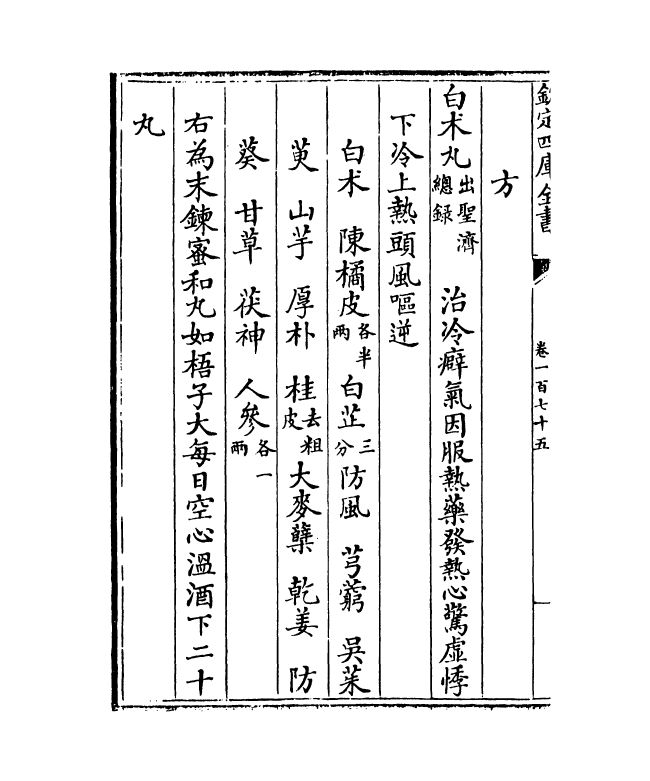 欽定四庫全書
卷一百七十五
方
白术丸出聖濟總録　治冷癖氣因服熱藥發熱心驚虛悸
下冷上熱頭風嘔逆
白术　陳橘皮各半兩　白芷三分　防風　芎藭　吳茱
萸　山芋　厚朴　桂去粗皮　大麥櫱　乾姜　防
葵　甘草　茯神　人參各一兩
右為末鍊蜜和丸如梧子大每日空心溫酒下二十
丸